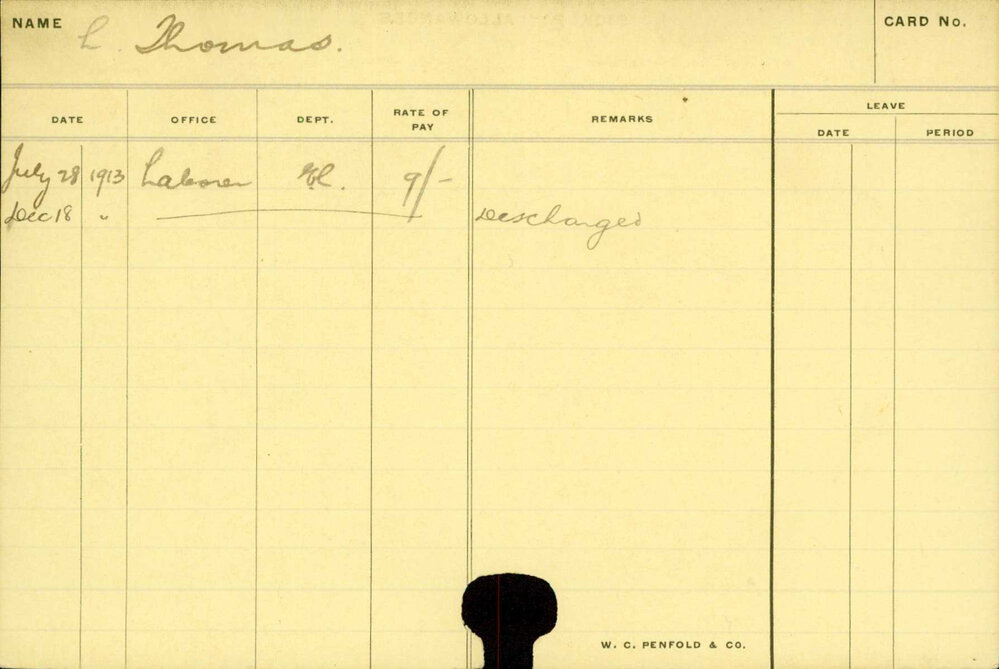 NAME L. Thomas.
CARD No.
DATE OFFICE DEPT. RATE OF PAY REMARKS LEAVE
DATE PERIOD
July 28 1913 Laborer El. 9/-
Dec 18 " Discharged
W. C. PENFOLD & CO.